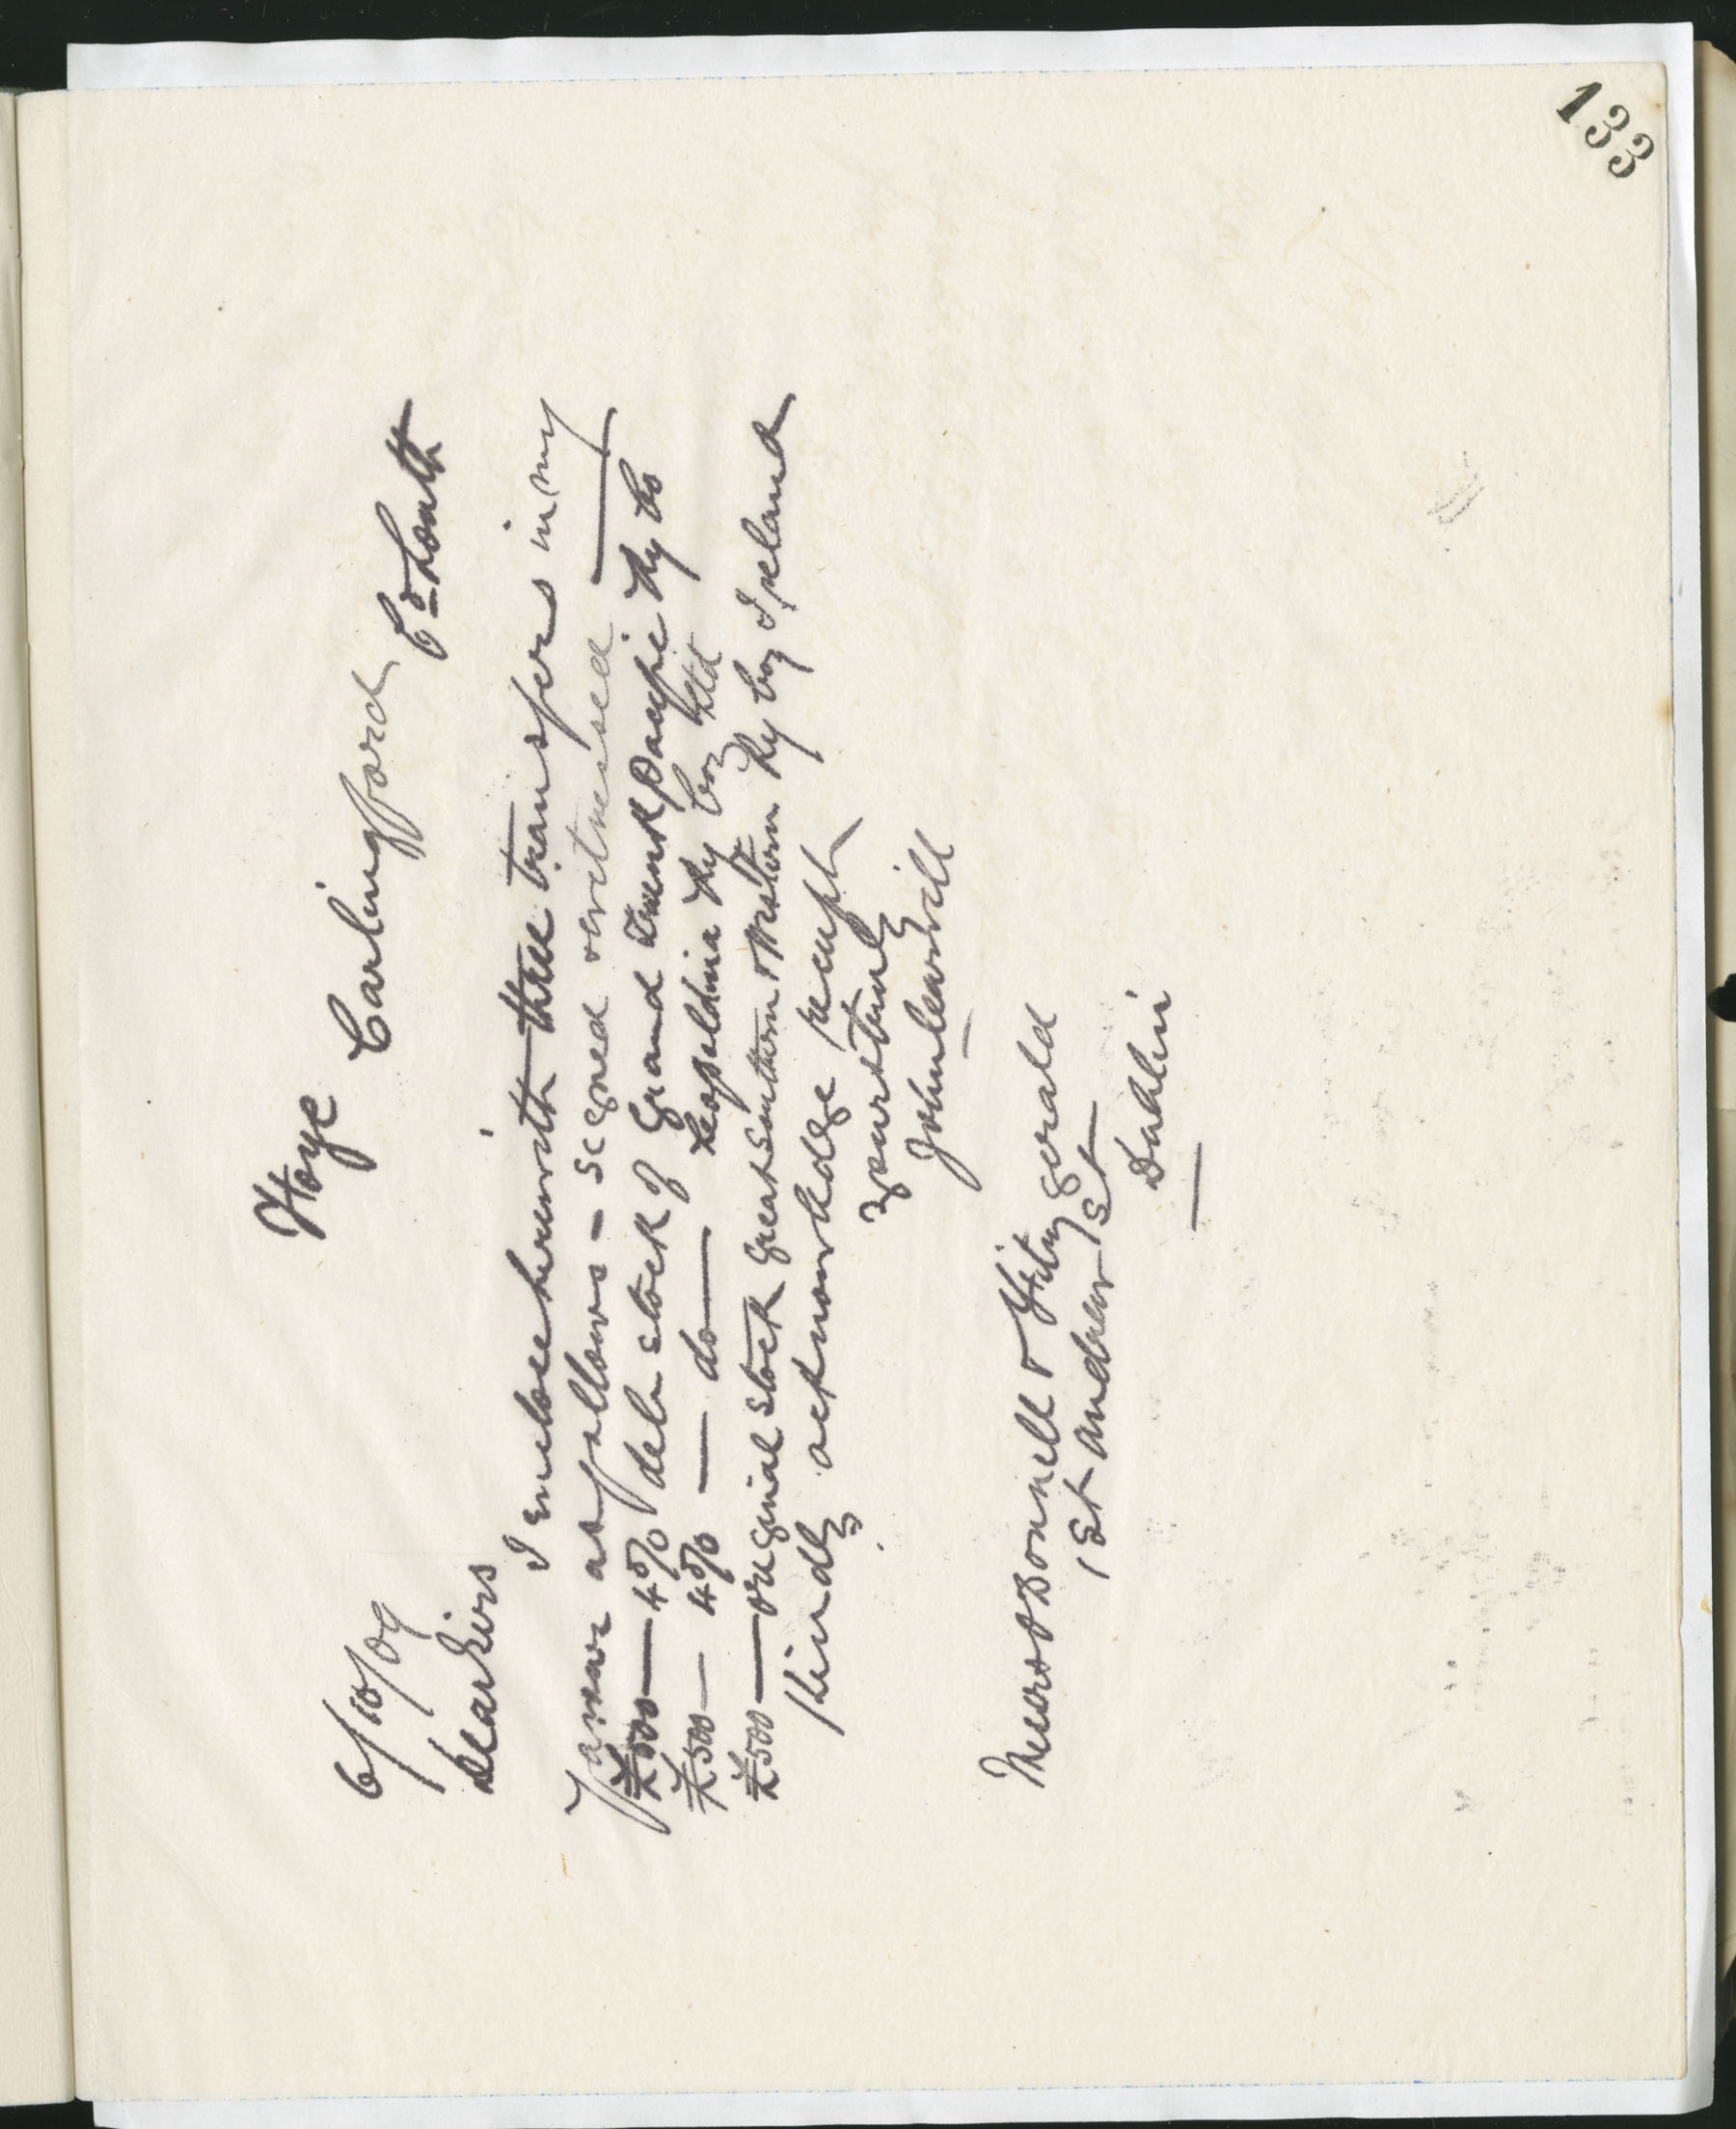 133
Haye
Carlingford
Co Louth
6/10/09
Dear Sirs
I enclose herewith three transfers in my
favour as follows - signed & witnessed
£500 — 4% deb stock of Grand Trunk Pacific Ry Co
£500 — 4% — do — Leopoldina Ry Coy Ltd
£500 — original stock Great Southern & Western Ry Coy Ireland
Kindly acknowledge receipt
yours truly
John
Messrs O Donnell & Fitzgerald
1 St Andrew St
Dublin